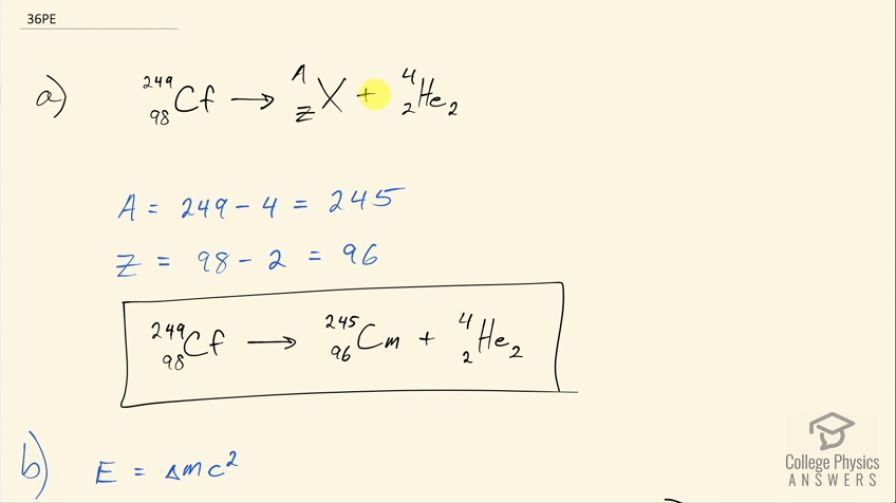 36PE
a) ²⁴⁹₉₈Cf → ᴬ_Z X + ⁴₂He₂
A = 249 - 4 = 245
Z = 98 - 2 = 96
²⁴⁹₉₈Cf → ²⁴⁵₉₆Cm + ⁴₂He₂
b) E = Δmc²
College Physics
ANSWERS